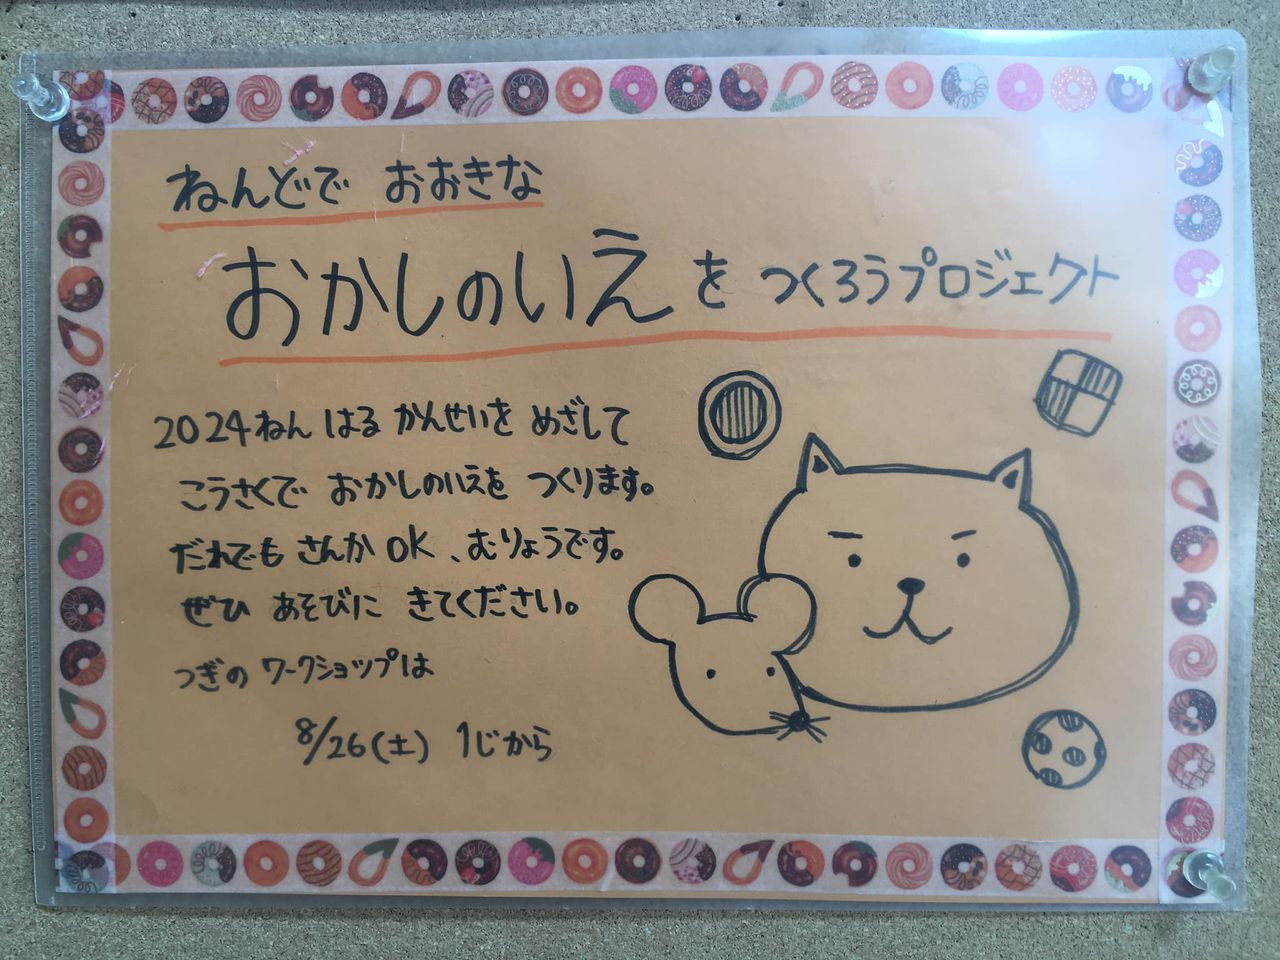 ねんどで おおきな
おかしのいえを つくろうプロジェクト
2024ねん はる かんせいを めざして
こうさくで おかしのいえを つくります。
だれでも さんか OK、むりょうです。
ぜひ あそびに きてください。
つぎの ワークショップは
8/26(土) 1じから